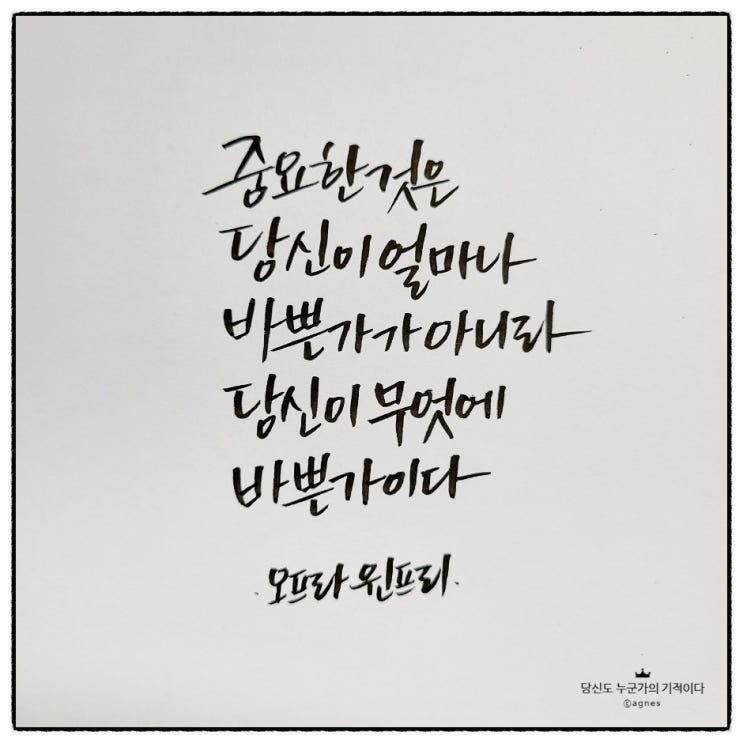 중요한 것은
당신이 얼마나
바쁜가가 아니라
당신이 무엇에
바쁜가이다
. 오프라 윈프리.
당신도 누군가의 기적이다
©agnes